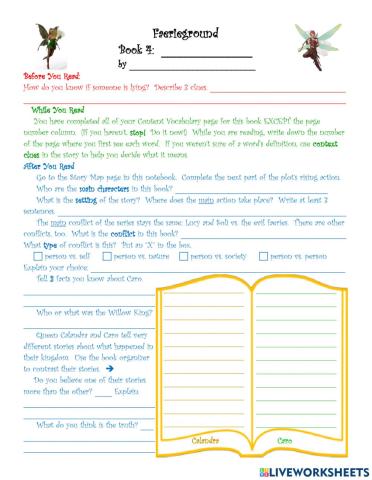 Faerieground
Book 4: ____________________
by ______________________________
Before You Read:
How do you know if someone is lying? Describe 2 clues. ______________________________
____________________________________________________________
While You Read
You have completed all of your Content Vocabulary page for this book EXCEPT the page
number column. (If you haven't, stop! Do it now!) While you are reading, write down the number
of the page where you first see each word. If you weren't sure of a word's definition, use context
clues in the story to help you decide what it means.
After You Read
Go to the Story Map page in this notebook. Complete the next part of the plot's rising action.
Who are the main characters in this book? ______________________________
What is the setting of the story? Where does the main action take place? Write at least 3
sentences. ______________________________
The main conflict of the series stays the same: Lucy and Soli vs. the evil faeries. There are other
conflicts, too. What is the conflict in this book? ______________________________
What type of conflict is this? Put an "X" in the box.
person vs. self person vs. nature person vs. society person vs. person
Explain your choice: ______________________________
Tell 3 facts you know about Caro.
______________________________
______________________________
Who or what was the Willow King?
______________________________
Queen Calandra and Caro tell very
different stories about what happened in
their kingdom. Use the book organizer
to contrast their stories. ➔
Do you believe one of their stories
more than the other? ____ Explain.
______________________________
______________________________
What do you think is the truth? ____
______________________________
______________________________
Calandra Caro
LIVEWORKSHEETS